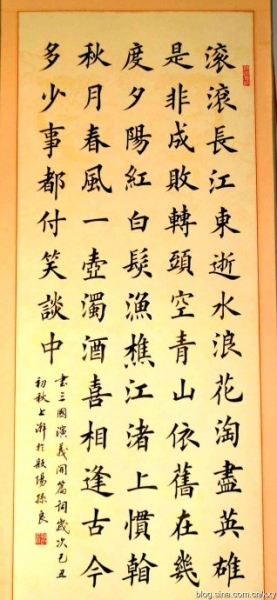 滾滾長江東逝水浪花淘盡英雄
是非成敗轉頭空青山依舊在幾
度夕陽紅白髮漁樵江渚上慣
秋月春風一壺濁酒喜相逢古今
多少事都付笑談中
书三國演義開篇詞歲次己丑
初秋上澣於陽孫良
blog.sina.com.cn